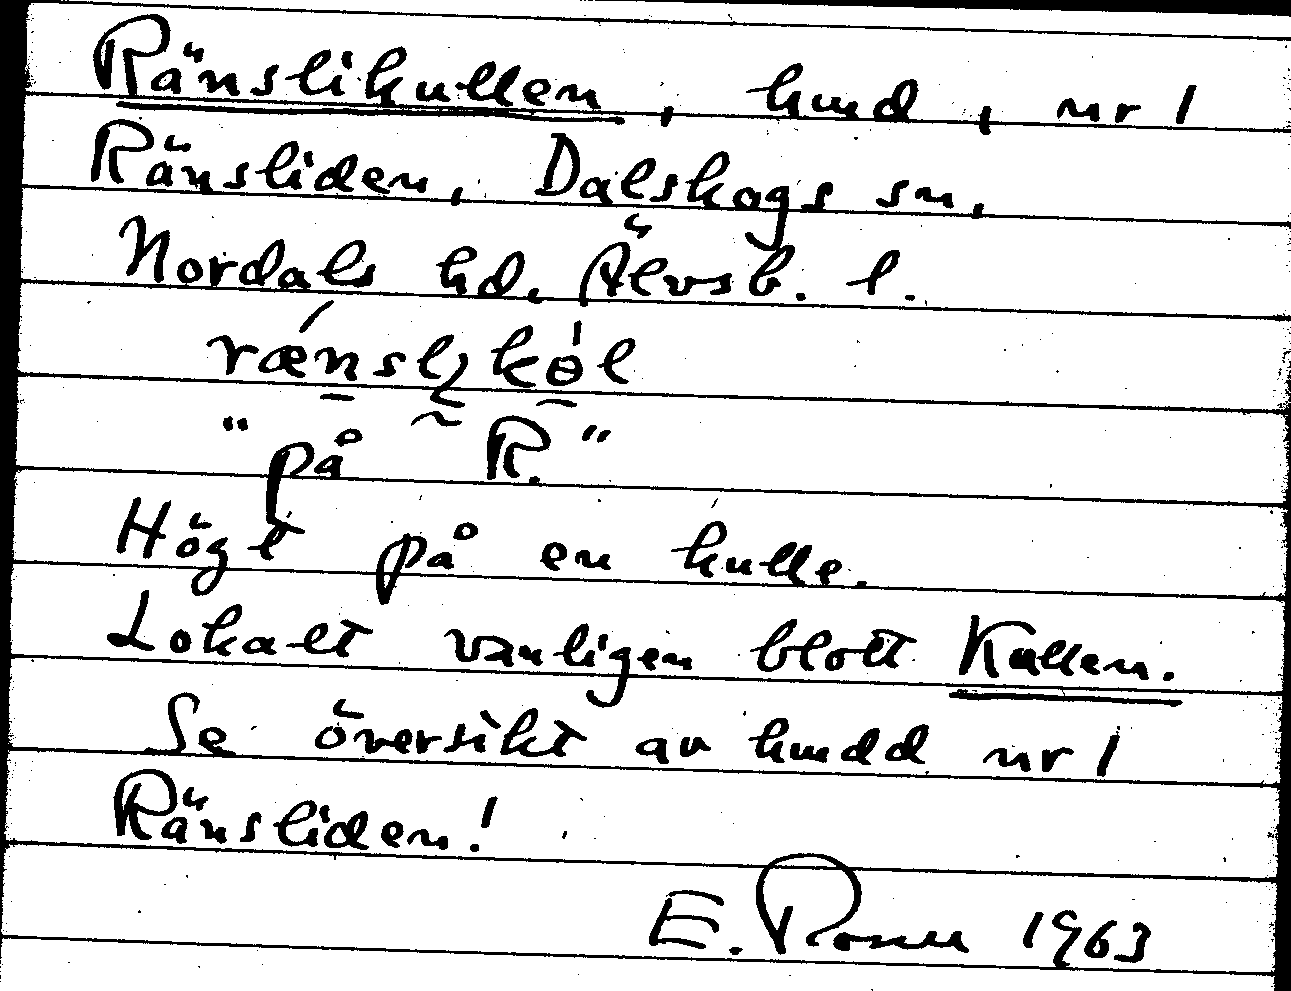 Ränslikullen, hmd, nr 1
Ränsliden, Dalskogs sn,
Nordals hd. Älvsb. l.
"på R."
Högt på en kulle.
Lokalt vanligen blott Kullen.
Se översikt av hmdd nr 1
Ränsliden!
E. Rosell 1963